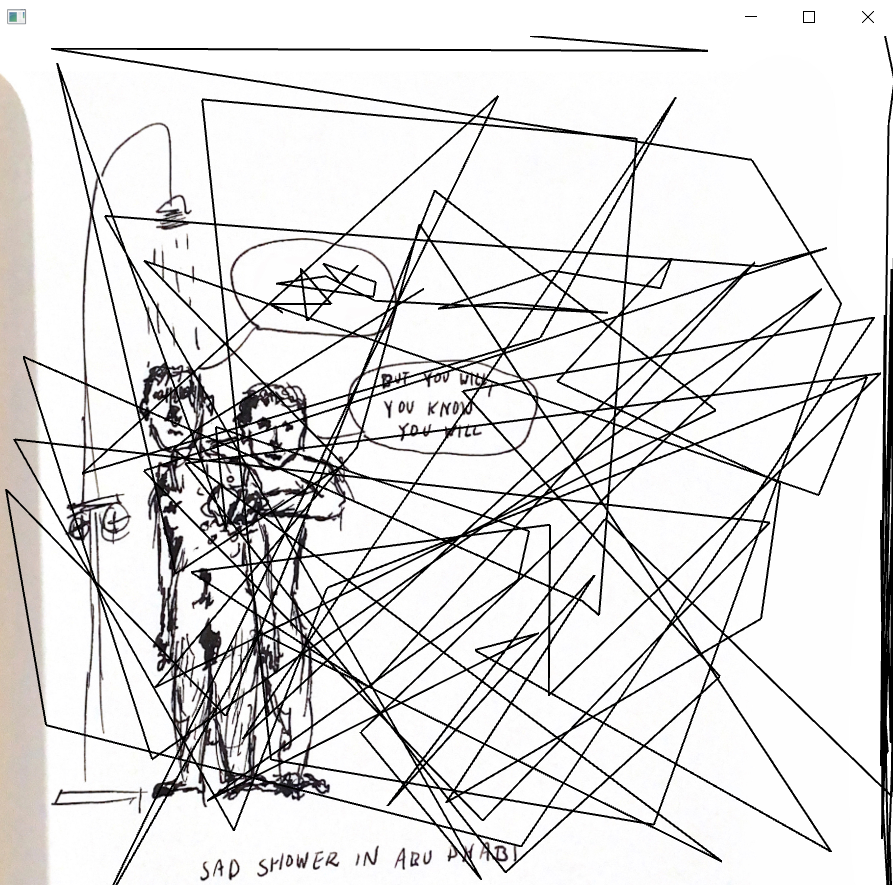 BUT YOU WILL
YOU KNOW
YOU WILL
SAD SHOWER IN ABU DHABI